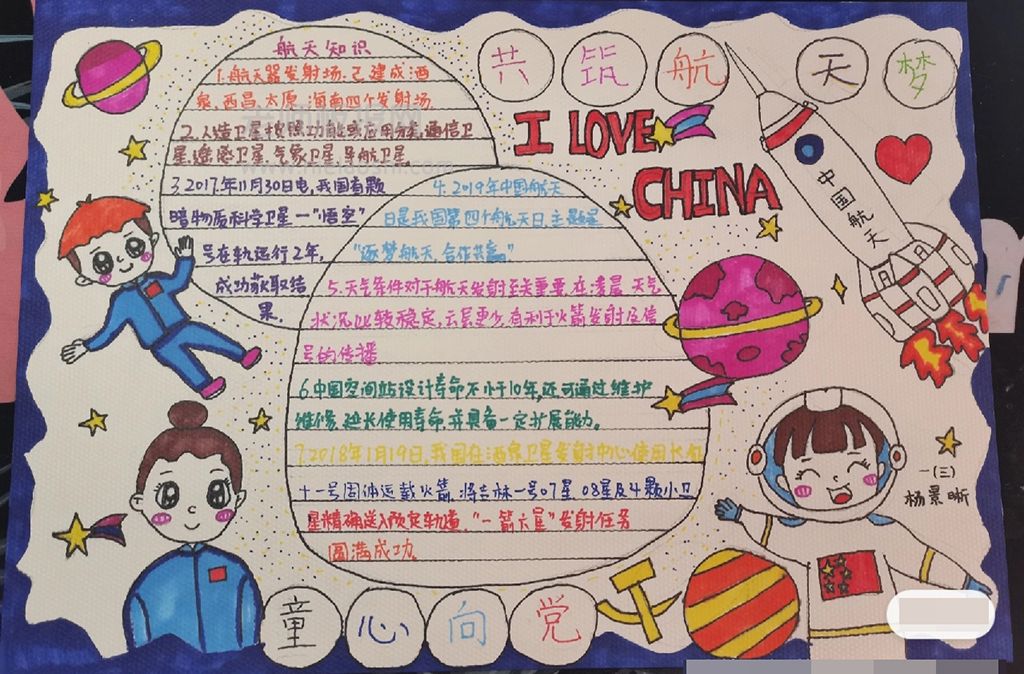 共筑航天梦
I LOVE
CHINA
中国航天
航天知识
1.航天器发射场:已建成酒
泉、西昌、太原、海南四个发射场.
2.人造卫星按照功能或应用分,通信卫
星,遥感卫星,气象卫星,导航卫星.
3.2017年11月30日电,我国首颗
暗物质科学卫星一"悟空"
号在轨运行2年,
成功获取结
果.
4.2019年中国航天
日是我国第四个航天日,主题是
"逐梦航天,合作共赢。"
5.天气条件对于航天发射至关重要.在凌晨天气
状况比较稳定,云层更少,有利于火箭发射及信
号的传播
6.中国空间站设计寿命不小于10年,还可通过维护
维修,延长使用寿命,并具备一定扩展能力。
7.2018年1月19日,我国在酒泉卫星发射中心使用长征
十一号固体运载火箭,将吉林一号07星、08星及4颗小卫
星精确送入预定轨道,"一箭六星"发射任务
圆满成功.
一(三)
杨景晰
童心向党